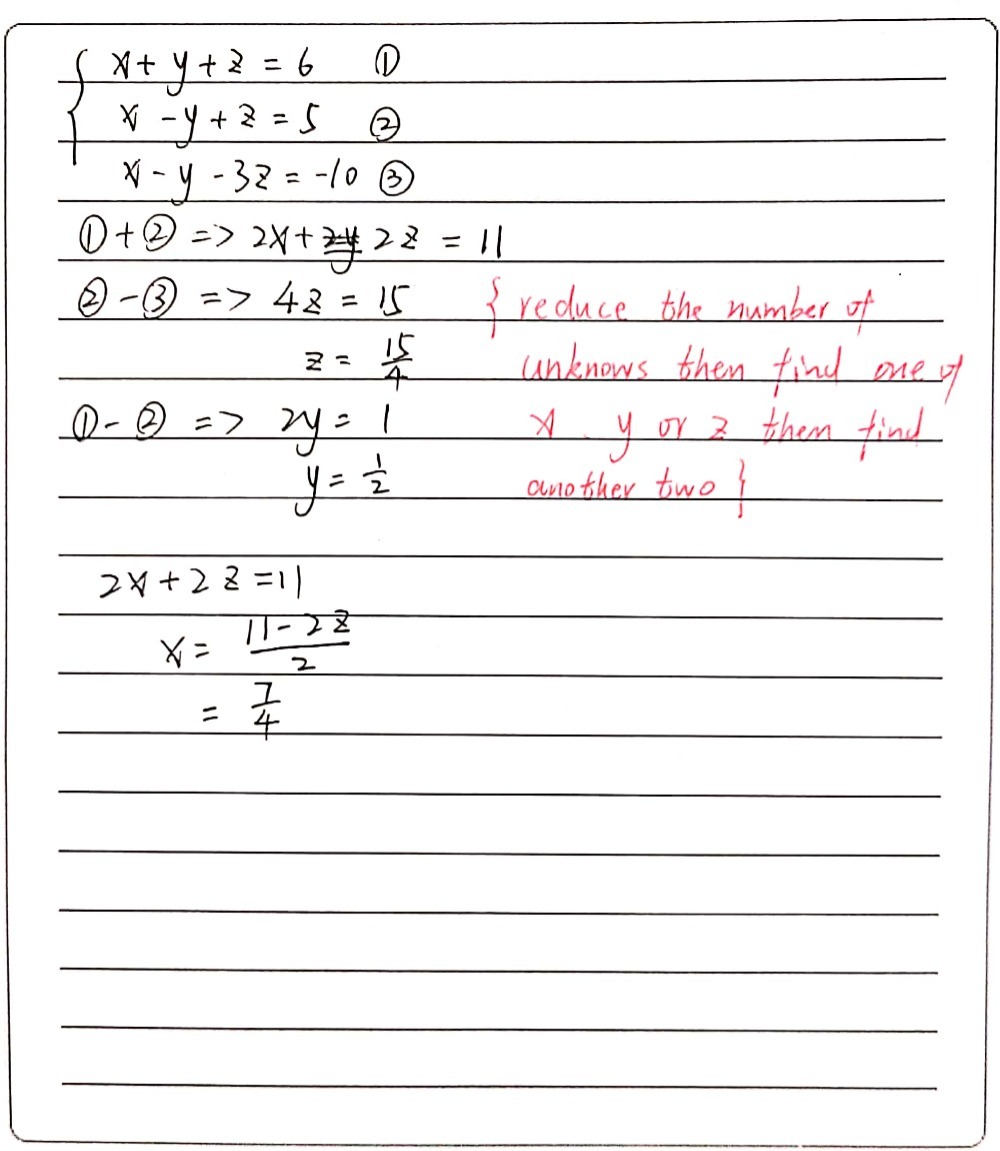 x + y + z = 6 ①
x - y + z = 5 ②
x - y - 3z = -10 ③
① + ② => 2x + 2y 2z = 11
② - ③ => 4z = 15 { reduce the number of
z = 15/4 unknows then find one of
① - ② => 2y = 1 x . y or z them find
y = 1/2 another two }
2x + 2z = 11
x = (11 - 2z)/2
= 7/4